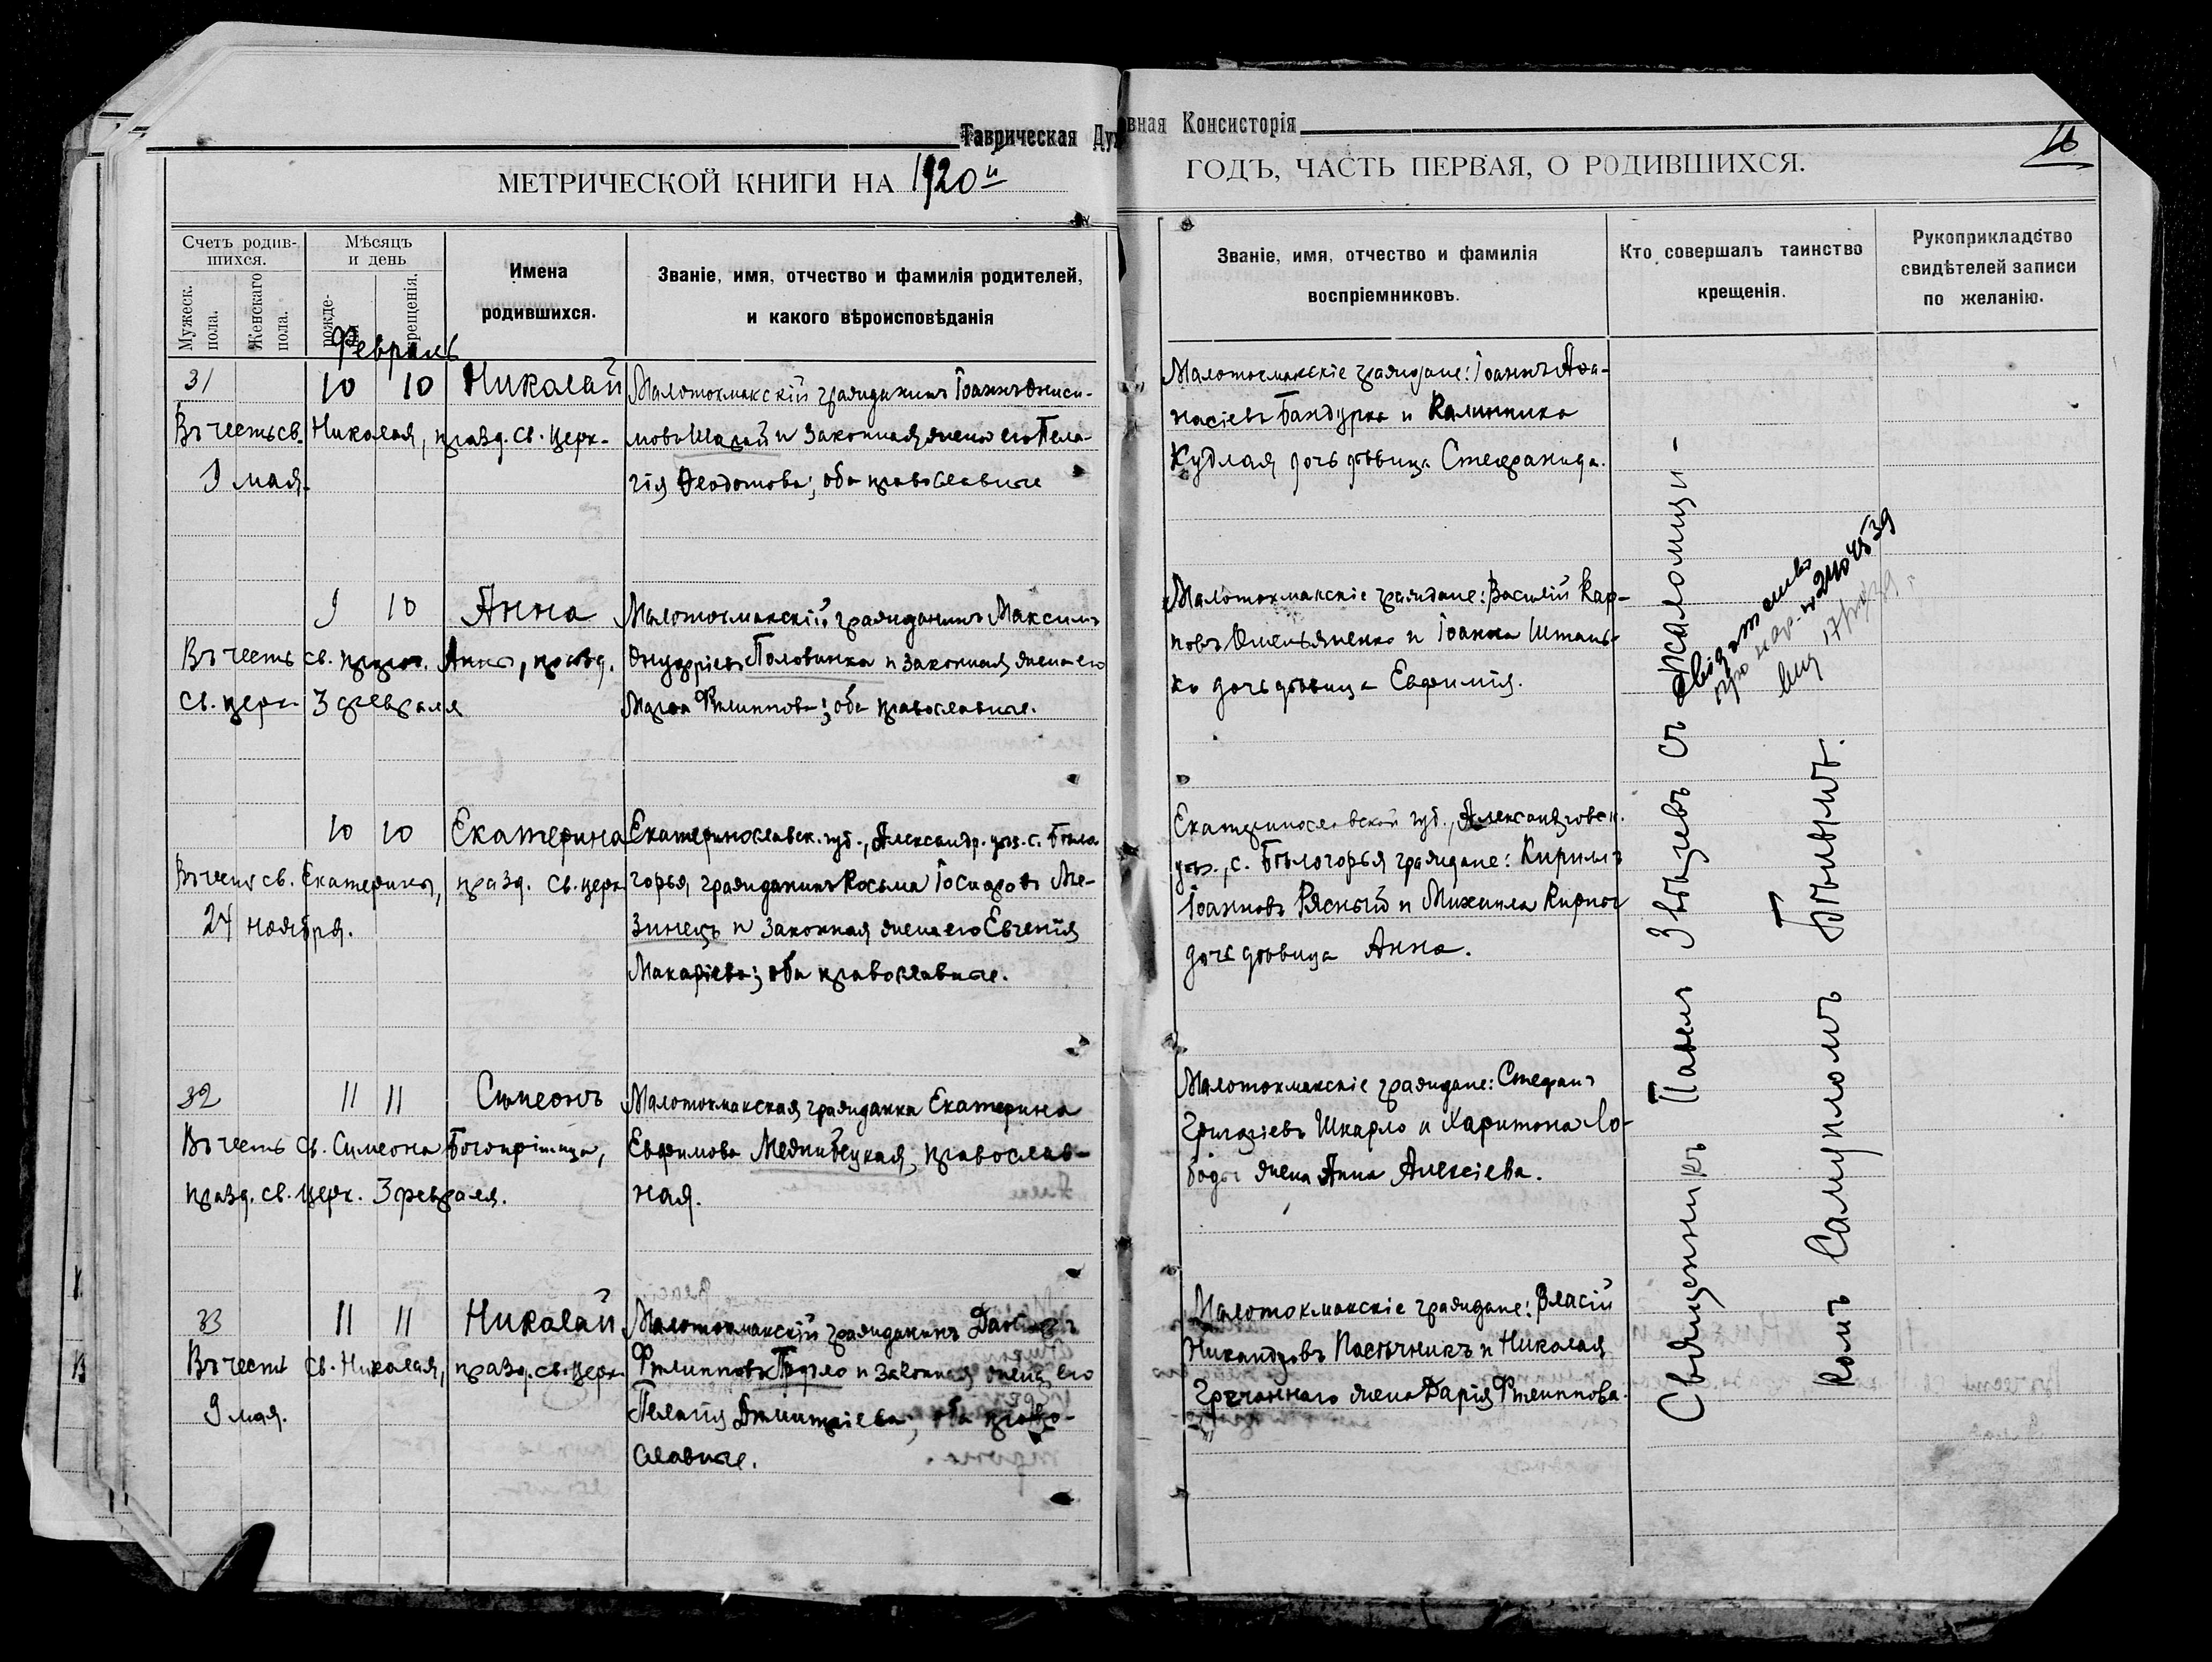 Таврическая Духовная Консисторія
МЕТРИЧЕСКОЙ КНИГИ НА 1920й ГОДЪ, ЧАСТЬ ПЕРВАЯ, О РОДИВШИХСЯ.
16
Счетъ родив-
шихся.
Мужеск. пола.
Женскаго пола.
Мѣсяцъ
и день
рожде-
крещенія.
Имена
родившихся.
Званіе, имя, отчество и фамилія родителей,
и какого вѣроисповѣданія
Званіе, имя, отчество и фамилія
воспріемниковъ.
Кто совершалъ таинство
крещенія.
Рукоприкладство
свидѣтелей записи
по желанію.
Февраль
31 10 10 Николай
Въ честь св. Николая, празд. св. церк.
9 мая.
Малотокмакскій гражданинъ Іоаннъ Ониси-
мовъ Шарай и законная жена его Пела-
гія Ѳеодотова; оба православные
Малотокмакскіе граждане: Іоаннъ Аѳа-
насіевъ Бандурка и Калинника
Кудлая дочь дѣвица Стефанида.
9 10 Анна
Въ честь св. прор. Анны, празд.
св. церк. 3 февраля
Малотокмакскій гражданинъ Максимъ
Онуфріевъ Половинка и законная жена его
Марѳа Филиппова; оба православные.
Малотокмакскіе граждане: Василій Кар-
повъ Омельяненко и Іоанна Штань-
ко дочь дѣвица Евфимія.
10 10 Екатерина
Въ честь св. Екатерины, празд. св. церк.
24 ноября.
Екатеринославск. губ., Александр. уѣз. с. Бѣло
горья, гражданинъ Косьма Іосифовъ Ме-
зинецъ и законная жена его Евгенія
Макаріева; оба православные.
Екатеринославской губ., Александровск.
уѣз., с. Бѣлогорья граждане: Кириллъ
Іоанновъ Рясный и Михаила Кирпы
дочь дѣвица Анна.
32 11 11 Симеонъ
Въ честь св. Симеона Богопріимца,
празд. св. церк. 3 февраля.
Малотокмакская гражданка Екатерина
Евфимова Меджибецкая, православ-
ная.
Малотокмакскіе граждане: Стефанъ
Григоріевъ Шкарло и Харитона Ло-
боды жена Анна Алексіева.
33 11 11 Николай
Въ честь св. Николая, празд. св. церк.
9 мая.
Малотокмакскій гражданинъ
Филипповъ и законная жена его
Пелагія Димитріева; оба право-
славные.
Малотокмакскіе граждане: Власій
Никандровъ Пасѣчникъ и Николая
Гречаннаго жена Дарія Филиппова.
Священникъ Павелъ Звѣревъ съ псаломщи-
комъ Самуиломъ Бѣлымъ.